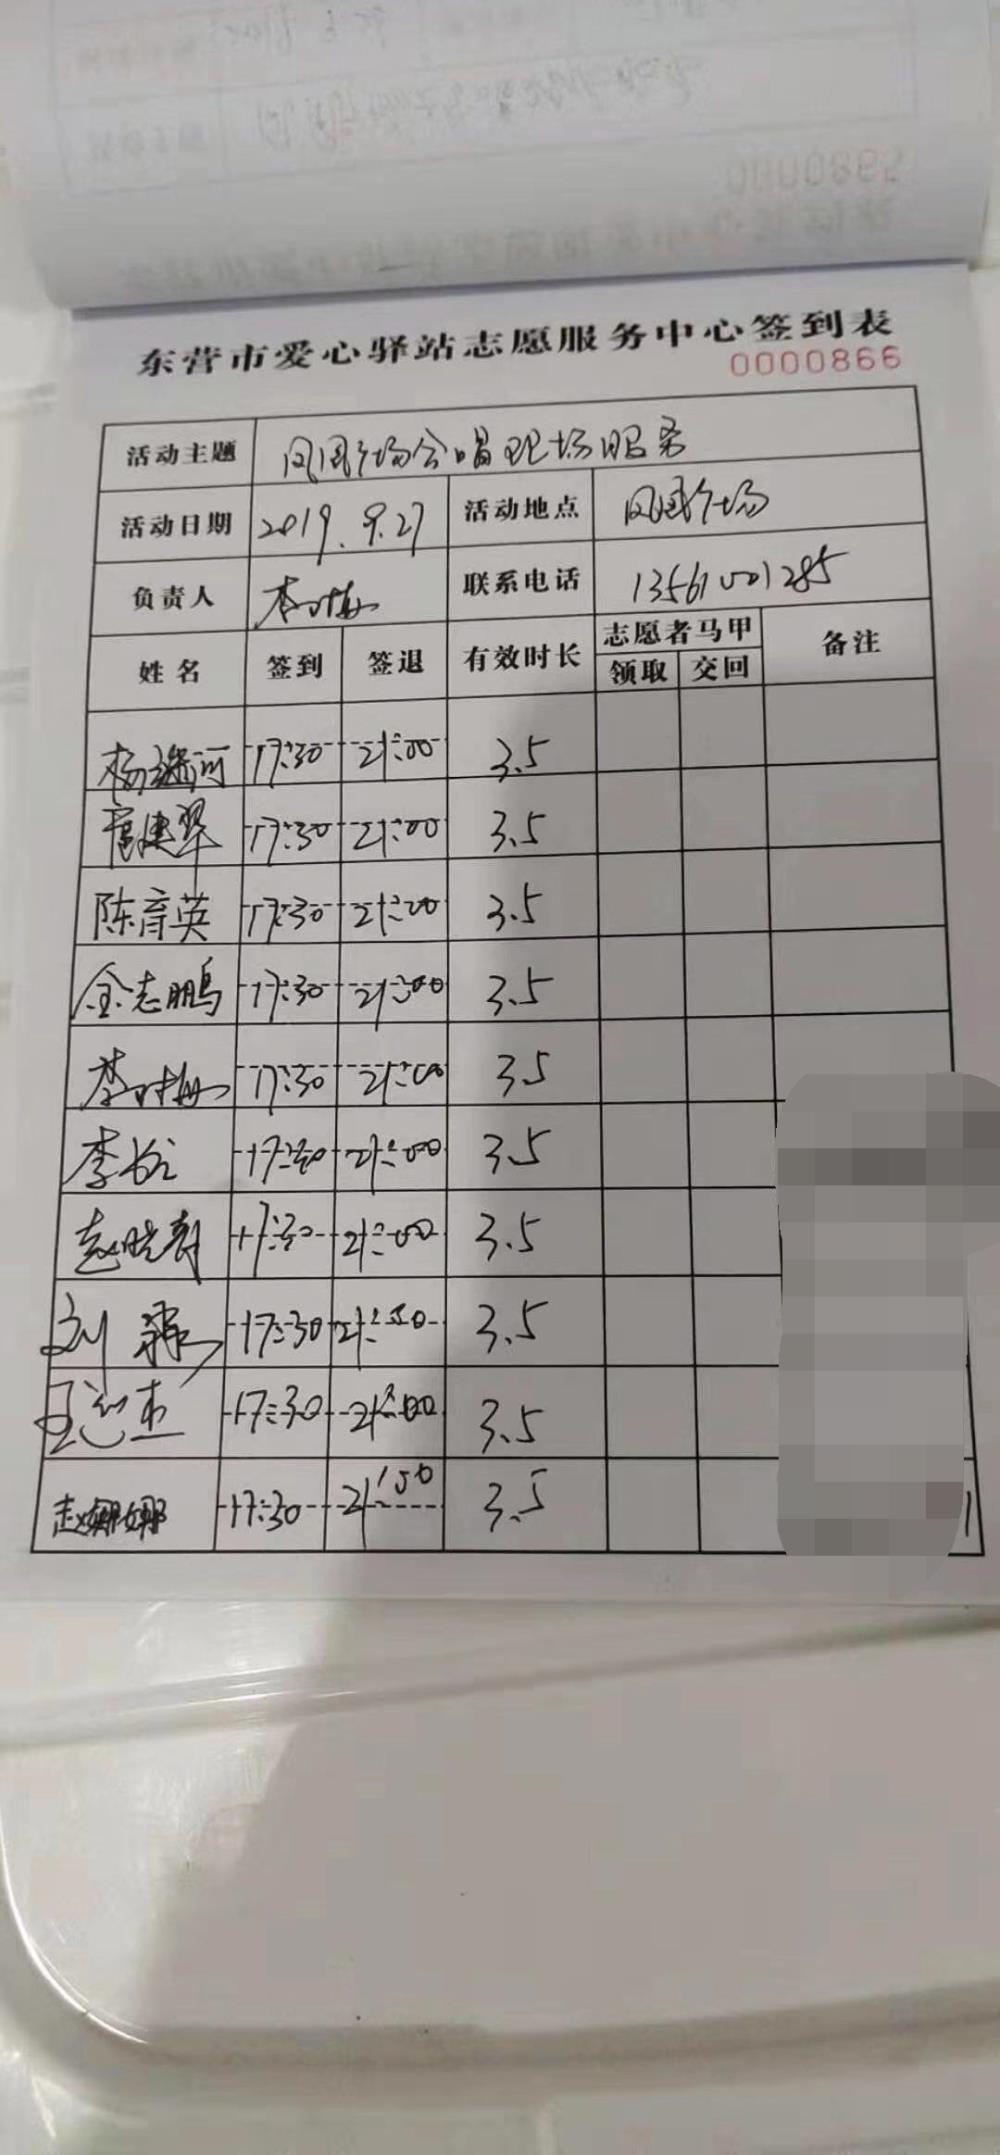 东营市爱心驿站志愿服务中心签到表
0000866
活动主题 凤凰广场合唱现场服务
活动日期 2019.9.27 活动地点 凤凰广场
负责人 李时梅 联系电话 13561001285
姓名 签到 签退 有效时长 志愿者马甲 备注
领取 交回
杨 河 17:30 21:00 3.5
17:30 21:00 3.5
陈育英 17:30 21:00 3.5
金志鹏 17:30 21:00 3.5
李时梅 17:30 21:00 3.5
李 17:30 21:00 3.5
赵晓 17:30 21:00 3.5
刘 17:30 21:00 3.5
王 17:30 21:00 3.5
赵娜娜 17:30 21:00 3.5